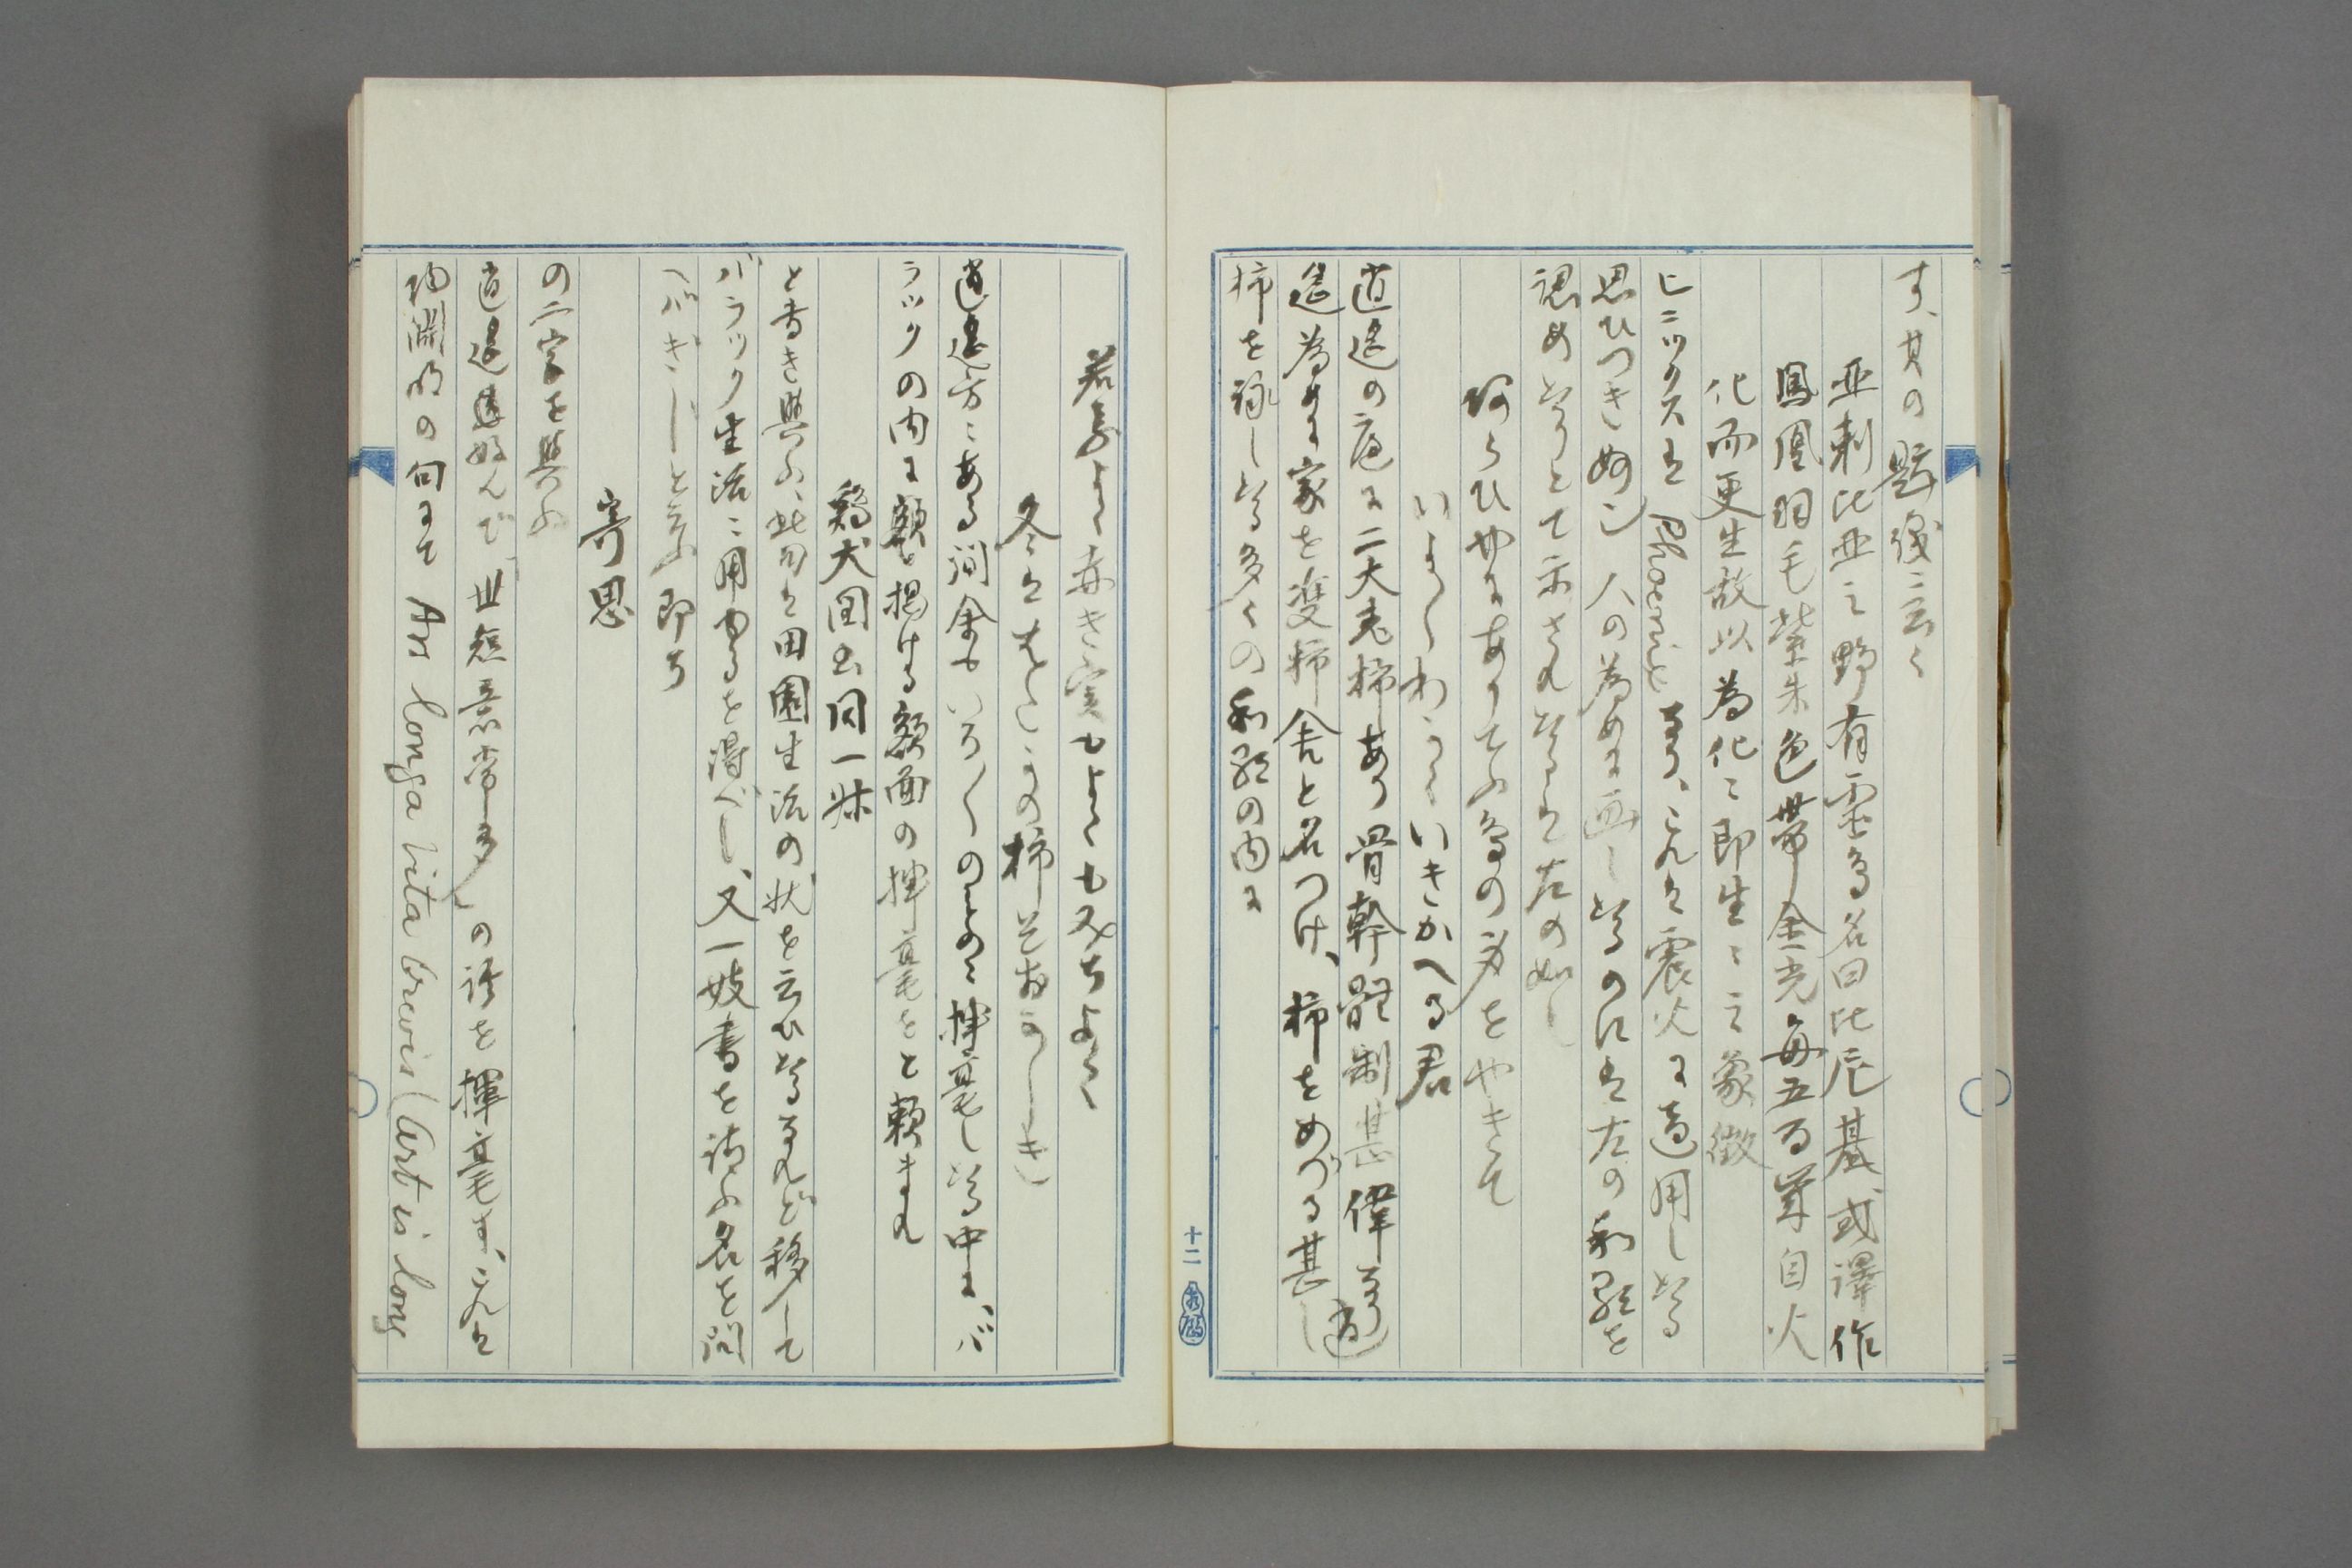 す、其の題箋ニ云く
亜剌比亜之野有霊鳥名曰比辰基或譯作
鳳凰羽毛紫朱色帯金光毎五百算自火
化而更生故以為化ニ即生ニ之象徴
ヒニックスは Phoenix なり、これを震火に適用したる
思ひつき妙ニ人の為めに画したるの口は左の和歌を
認めたりとて示されたるを左の如し
阿らひやにありてふ鳥の身をやきて
いよゝわかくいきかへる君
逍遙の庭に二大老柿あり骨幹體制甚偉なり逍
遙為めに家を雙柿舎と名つけ、柿をめづる甚し
柿を詠したる多くの和歌の内に
十二
若葉よく赤き実もよくもみちよく
冬はまたこの柿そおかしき
逍遙方ニある間余もいろ〳〵のもの揮毫したる中に、バ
ラックの内に額を掲ける額面の揮毫をと頼まれ
鶏犬圖書同一牀
と書き與ふ、此句を田園生活の状を云ひたるなれど移して
バラック生活ニ用ゆるを得べし、又一妓書を請ふ名を問
へバぎしと云ふ即ち
寄思
の二字を與ふ
逍遙好んで「世短意常多」の語を揮毫す、これは
陶淵明の句にて Ars longa Vita brevis (Art is long